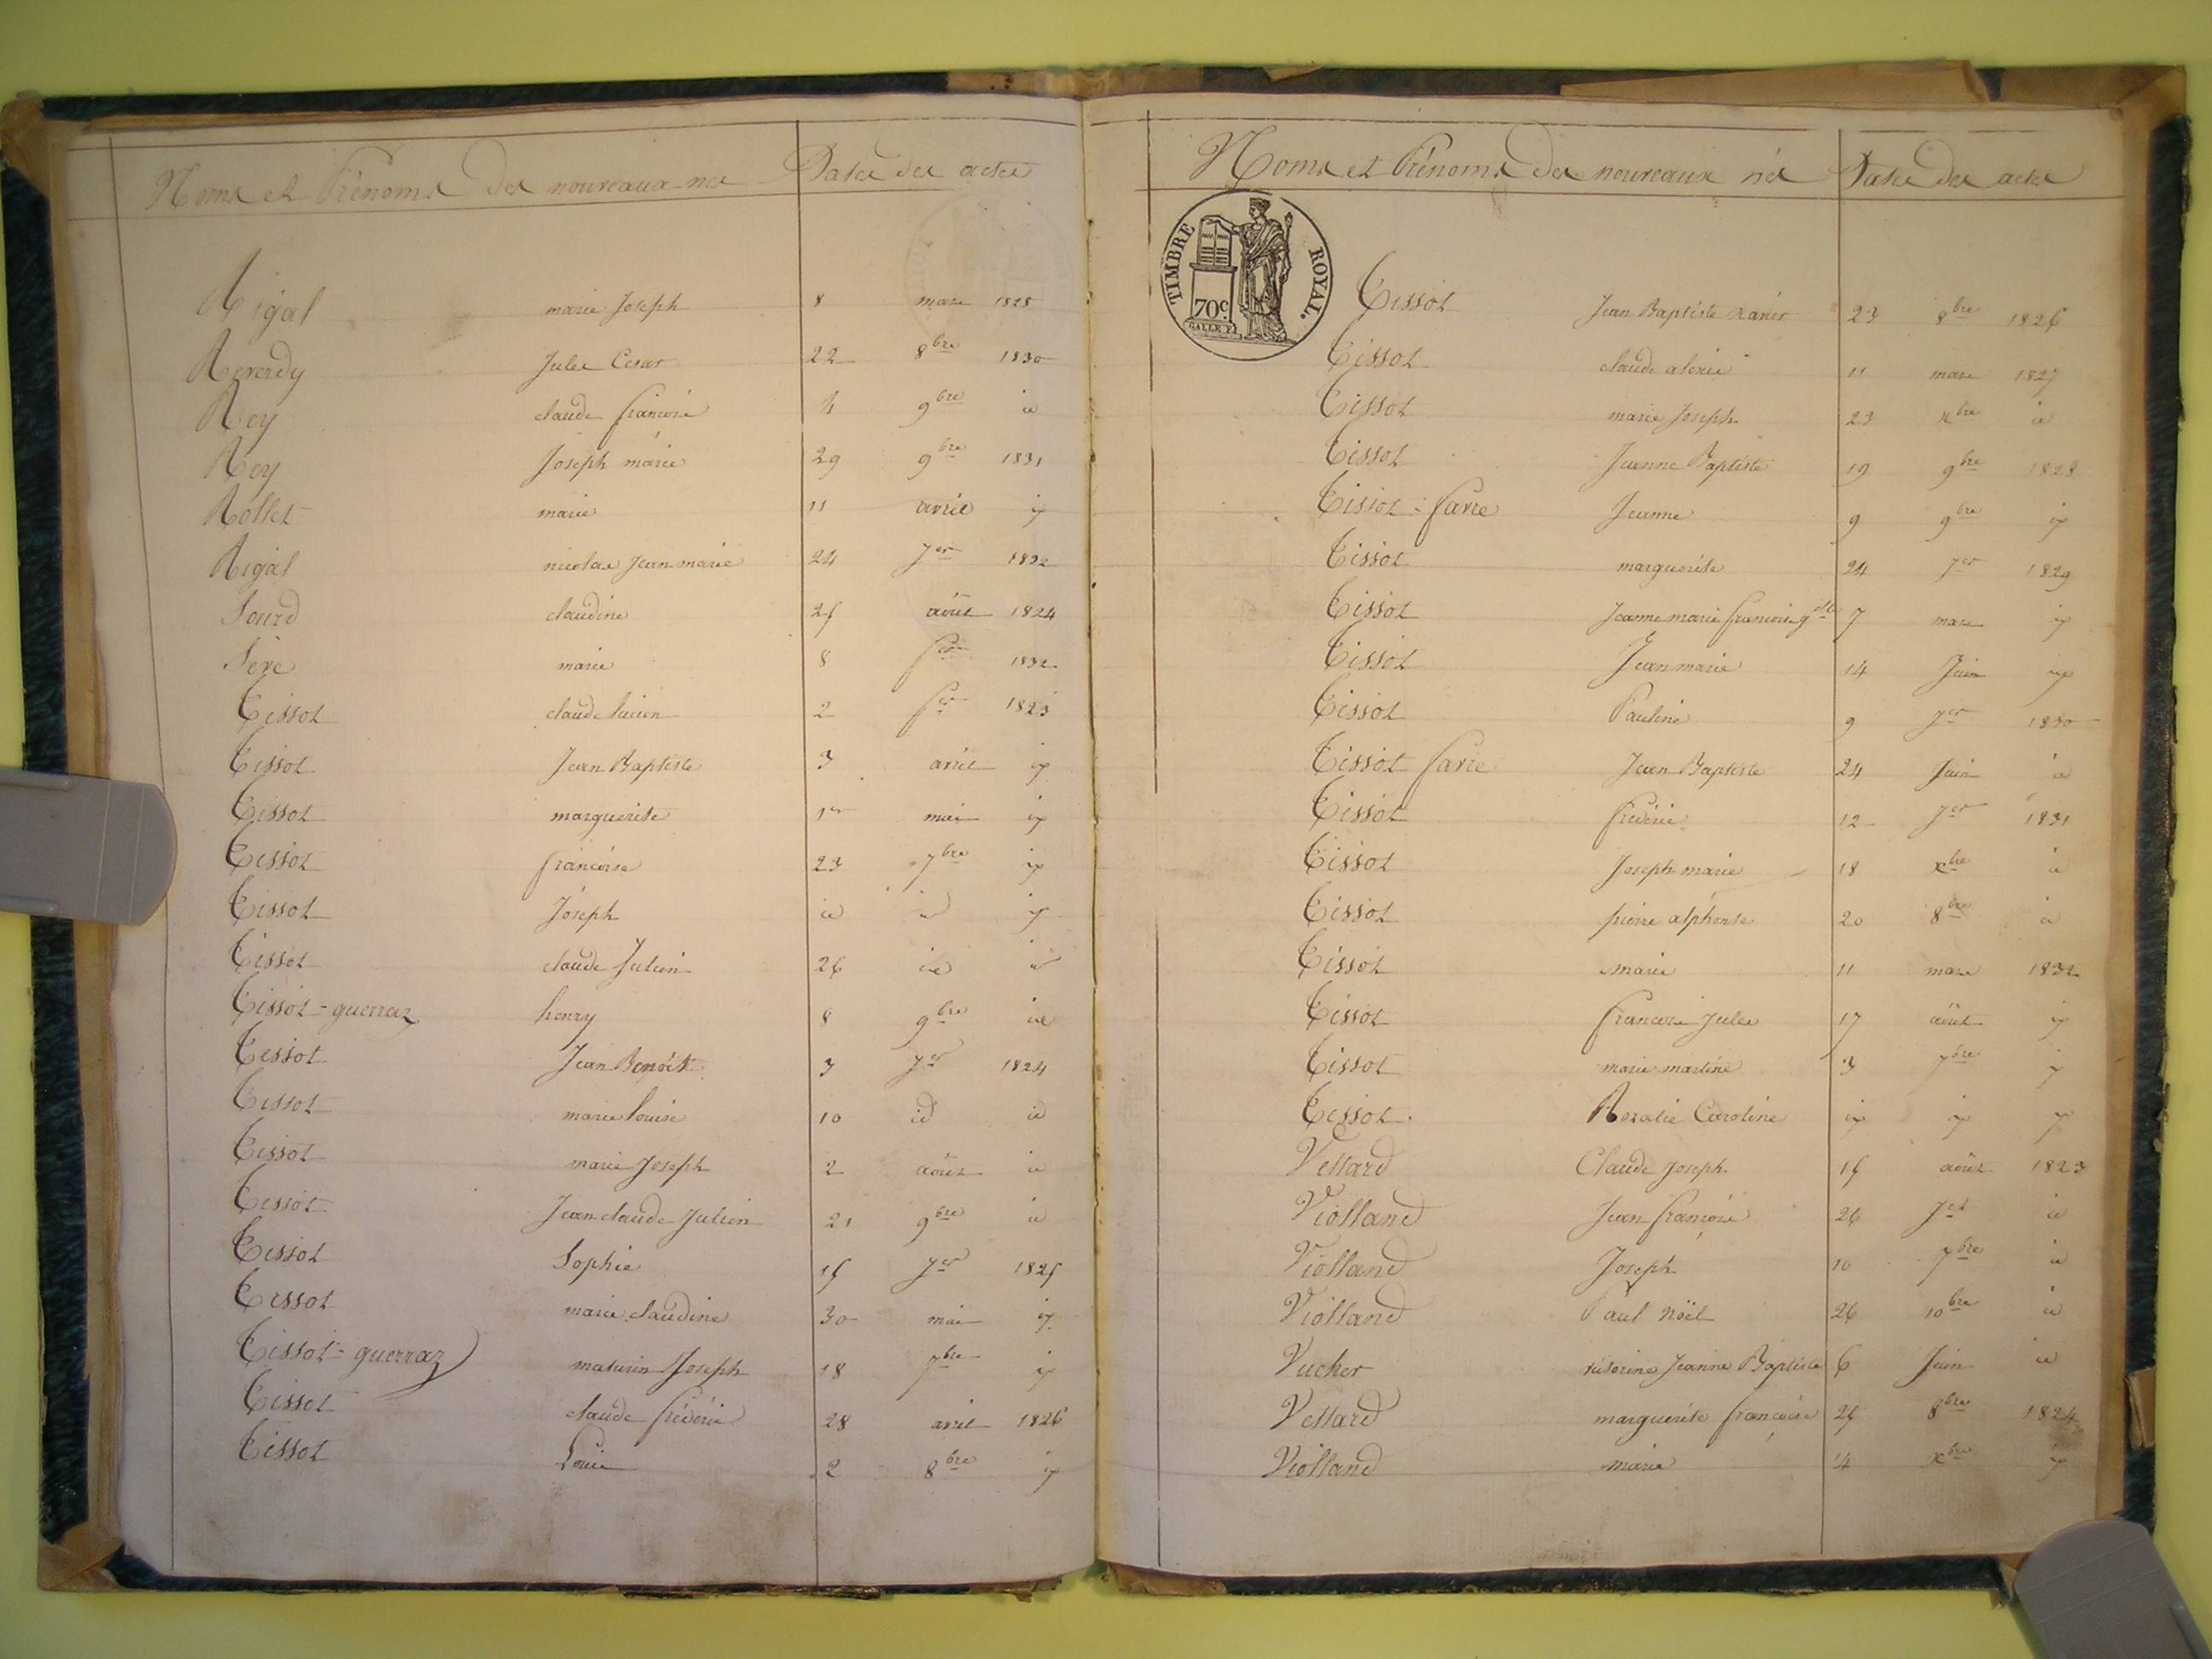 Noms et Prénoms des nouveaux-nés Dates des actes
Rigal marie Joseph 8 mars 1828
Reverdy Jules Cesar 22 8bre 1830
Rey claude françois 4 9bre id
Rey Joseph marie 29 9bre 1831
Rollet marie 11 avril
Rigal nicolas Jean marie 24 Jer 1832
Sourd claudine 25 août 1824
Seve marie 8 fer 1832
Tissot claude lucien 2 fer 1823
Tissot Jean Baptiste 3 avril
Tissot marguerite 1er mai
Tissot françoise 23 7bre
Tissot Joseph id id
Tissot claude Julien 26 id id
Tissot-guerraz henry 8 9bre id
Tissot Jean Benoit 3 Jer 1824
Tissot marie louise 10 id id
Tissot marie Joseph 2 août id
Tissot Jean claude Julien 21 9bre id
Tissot Sophie 15 Jer 1825
Tissot marie claudine 30 mai
Tissot-guerraz maturin Joseph 18 7bre
Tissot claude fréderic 28 avril 1826
Tissot Louis 2 8bre
Noms et Prénoms des nouveaux nés Dates des actes
TIMBRE ROYAL.
70c.
Tissot Jean Baptiste xavier 23 8bre 1826
Tissot claude alexis 11 mars 1827
Tissot marie Joseph 23 xbre id
Tissot Jeanne Baptiste 19 9bre 1828
Tissot-favre Jeanne 9 9bre
Tissot marguerite 24 Jer 1829
Tissot Jeanne marie françoise 7 mars
Tissot Jean marie 14 Juin
Tissot Pauline 9 Jer 1830
Tissot favre Jean Baptiste 24 Juin id
Tissot fréderic 12 Jer 1831
Tissot Joseph marie 18 xbre id
Tissot pierre alphonse 20 8bre id
Tissot marie 11 mars 1832
Tissot françois Jules 17 août
Tissot marie martine 3 7bre
Tissot Rosalie Caroline
Vellard Claude Joseph 15 août 1823
Violland Jean françois 26 Jet id
Violland Joseph 10 7bre id
Violland Paul Noël 26 10bre id
Vucher victorine Jeanne Baptiste 6 Juin id
Vellard marguerite françoise 25 8bre 1824
Violland marie 4 xbre